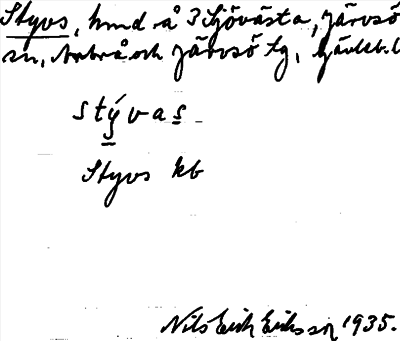 Styvs, hmd å 3 Sjövästa, Järvsö
sn, Arbrå och Järvsö tg, Gävleb. l
stývas
Styvs kb
Nils Erik Eriksson 1935.